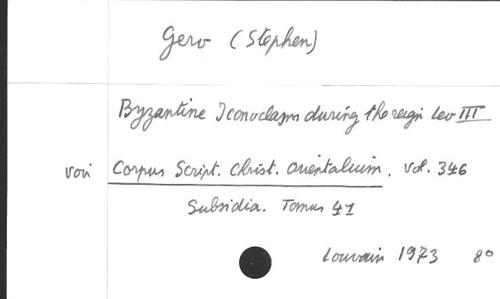 Gero (Stephen)
Byzantine Iconoclasm during the reign Leo III
voir Corpus Script. Christ. Orientalium. Vol. 346
Subsidia. Tomus 41
Louvain 1973 8°